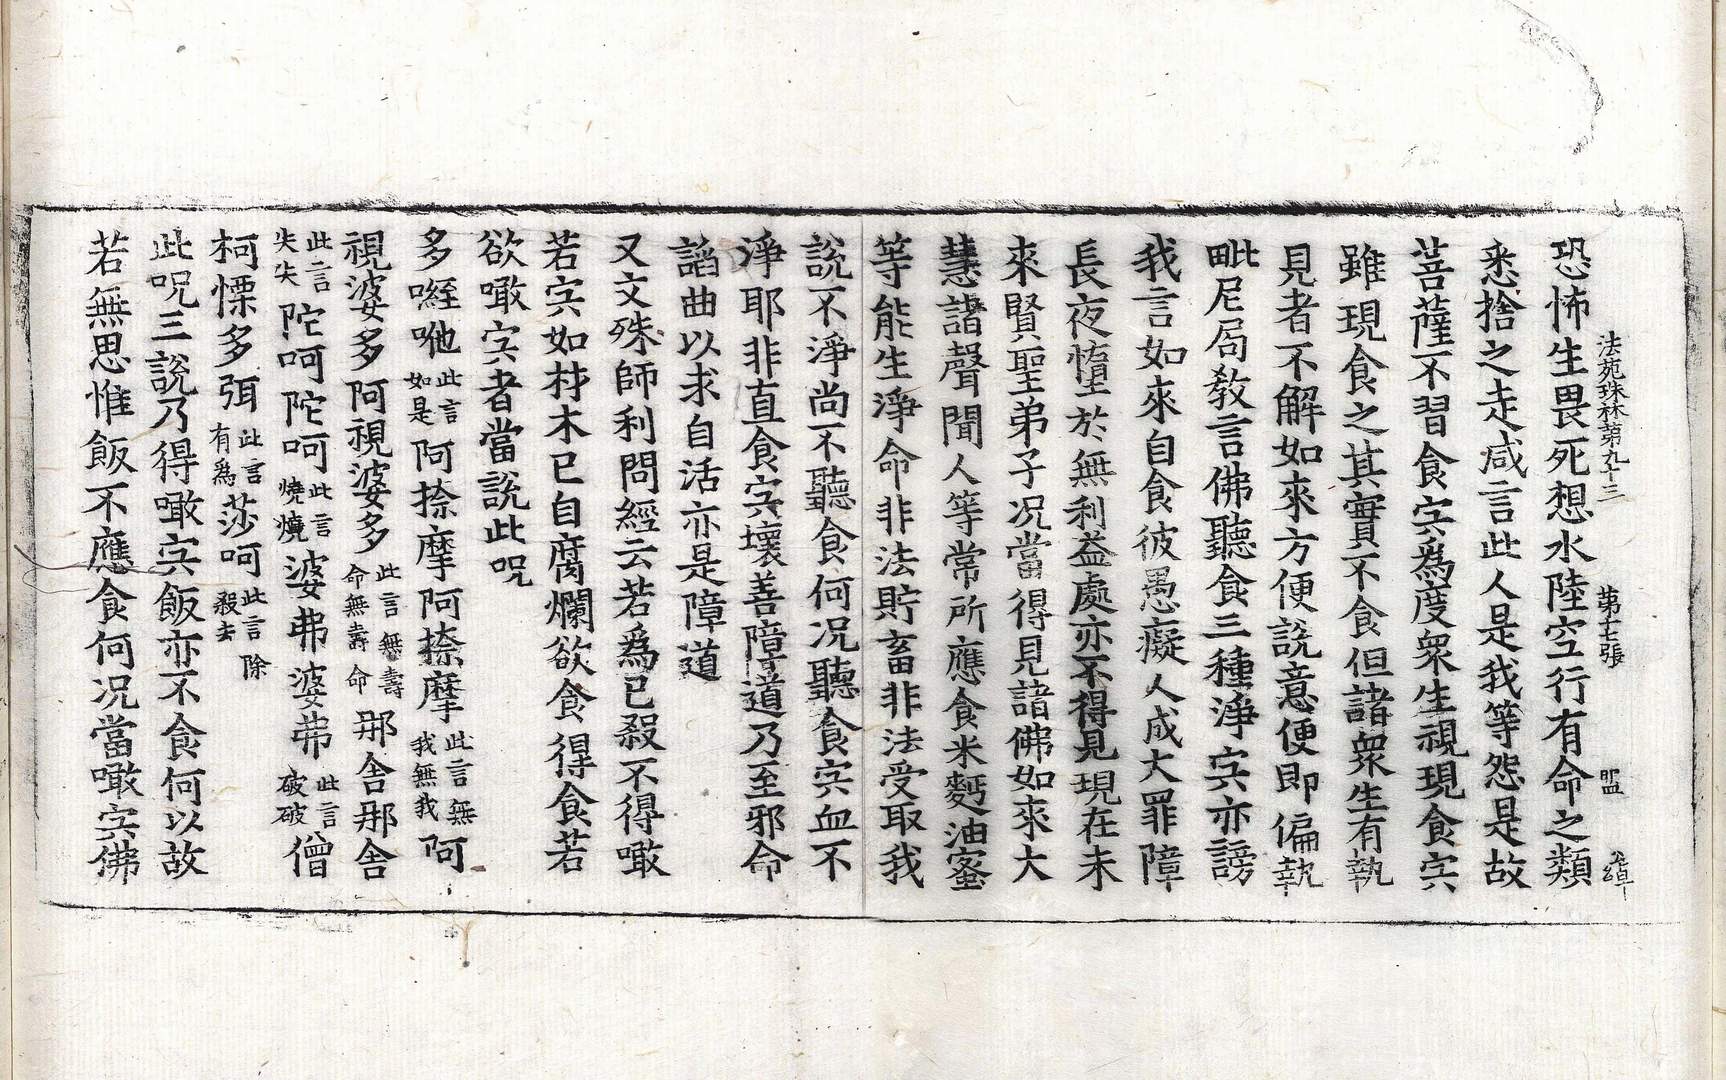 法苑珠林第九十三　第十七張　盟
恐怖生畏死想水陸空行有命之類
悉捨之走咸言此人是我等怨是故
菩薩不習食宍為度衆生視現食宍
雖現食之其實不食但諸衆生有執
見者不解如來方便說意便即偏執
毗尼局教言佛聽食三種淨宍亦謗
我言如來自食彼愚癡人成大罪障
長夜墮於無利益處亦不得見現在未
來賢聖弟子况當得見諸佛如來大
慧諸聲聞人等常所應食米麪油蜜
等能生淨命非法貯畜非法受取我
說不淨尚不聽食何况聽食宍血不
淨耶非直食宍壞善障道乃至邪命
諂曲以求自活亦是障道
又文殊師利問經云若為已殺不得噉
若宍如材木已自腐爛欲食得食若
欲噉宍者當說此呪
多㗌哋此言如是阿捺摩阿捺摩此言無我無我阿
視婆多阿視婆多此言無壽命無壽命那舍那舍
此言失失陀呵陀呵此言燒燒婆弗婆弗此言破破僧
柯慄多弭此言有為莎呵此言除殺去
此呪三說乃得噉宍飯亦不食何以故
若無思惟飯不應食何况當噉宍佛